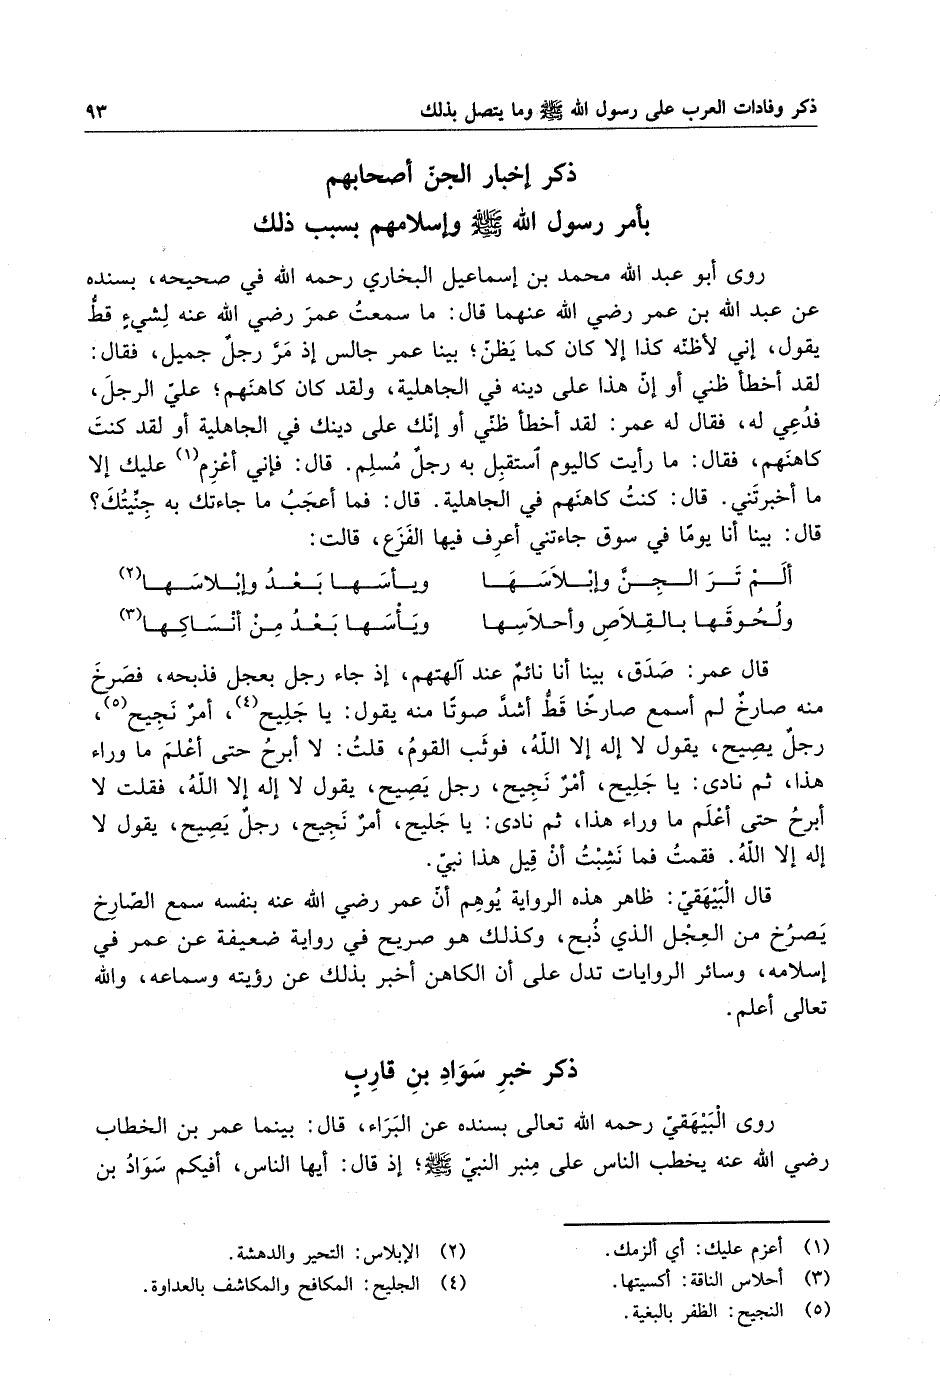 ذكر وفادات العرب على رسول الله ﷺ وما يتصل بذلك ٩٣
ذكر إخبار الجنّ أصحابهم
بأمر رسول الله ﷺ وإسلامهم بسبب ذلك
روى أبو عبد الله محمد بن إسماعيل البخاري رحمه الله في صحيحه، بسنده
عن عبد الله بن عمر رضي الله عنهما قال: ما سمعتُ عمرَ رضي الله عنه لِشيءٍ قطُّ
يقول، إني لأظنّه كذا إلا كان كما يَظنّ؛ بينا عمر جالس إذ مَرَّ رجلٌ جميل، فقال:
لقد أخطأ ظني أو إنّ هذا على دينه في الجاهلية، ولقد كان كاهنَهم؛ عليّ الرجلَ،
فدُعِي له، فقال له عمر: لقد أخطأ ظنّي أو إنّك على دينك في الجاهلية أو لقد كنتَ
كاهنَهم، فقال: ما رأيت كاليوم ٱستقبِل به رجلٌ مُسلِم. قال: فإني أعْزِم(١) عليك إلا
ما أخبرتَني. قال: كنتُ كاهنَهم في الجاهلية. قال: فما أعجَبُ ما جاءتك به جِنِّيتُكَ؟
قال: بينا أنا يومًا في سوق جاءتني أعرِف فيها الفَزَع، قالت:
ألَــمْ تَــرَ الــجِــنَّ وإبْــلاَسَــهَــا ويــأسَــهــا بَــعْــدُ وإبْــلاسَــهــا(٢)
ولُحُوقَـهـا بـالـقِـلاَصِ وأحـلاسِـهـا ويَـأْسَـهـا بَـعْـدُ مِـنْ أنْـسَـاكِـهـا(٣)
قال عمر: صَدَق، بينا أنا نائمٌ عند آلهتهم، إذ جاء رجل بعجل فذبحه، فصَرخَ
منه صارخٌ لم أسمع صارخًا قَطُّ أشدَّ صوتًا منه يقول: يا جَلِيح(٤)، أمرٌ نَجِيح(٥)،
رجلٌ يصِيح، يقول لا إله إلا اللّهُ، فوثَب القومُ، قلتُ: لا أبرحُ حتى أعْلمَ ما وراء
هذا، ثم نادى: يا جَلِيح، أمْرٌ نَجِيح، رجل يَصِيح، يقول لا إله إلا اللّهُ، فقلت لا
أبرحُ حتى أعْلَم ما وراء هذا، ثم نادى: يا جَليح، أمرٌ نَجِيح، رجلٌ يَصِيح، يقول لا
إله إلا اللّهُ. فقمتُ فما نَشِبْتُ أنْ قِيل هذا نبيّ.
قال الْبَيْهَقيّ: ظاهر هذه الرواية يُوهِم أنّ عمر رضي الله عنه بنفسه سمع الصّارِخ
يَصرُخ من العِجْل الذي ذُبح، وكذلك هو صريح في رواية ضعيفة عن عمر في
إسلامه، وسائر الروايات تدل على أن الكاهن أخبر بذلك عن رؤيته وسماعه، والله
تعالى أعلم.
ذكر خبرِ سَوَادِ بنِ قارِبٍ
روى الْبَيْهَقيّ رحمه الله تعالى بسنده عن البَرَاء، قال: بينما عمر بن الخطاب
رضي الله عنه يخطب الناس على مِنبر النبيّ ﷺ؛ إذ قال: أيها الناس، أفيكم سَوَادُ بن
(١) أعزم عليك: أي ألزمك. (٢) الإبلاس: التحير والدهشة.
(٣) أحلاس الناقة: أكسيتها. (٤) الجليح: المكافح والمكاشف بالعداوة.
(٥) النجيح: الظفر بالبغية.